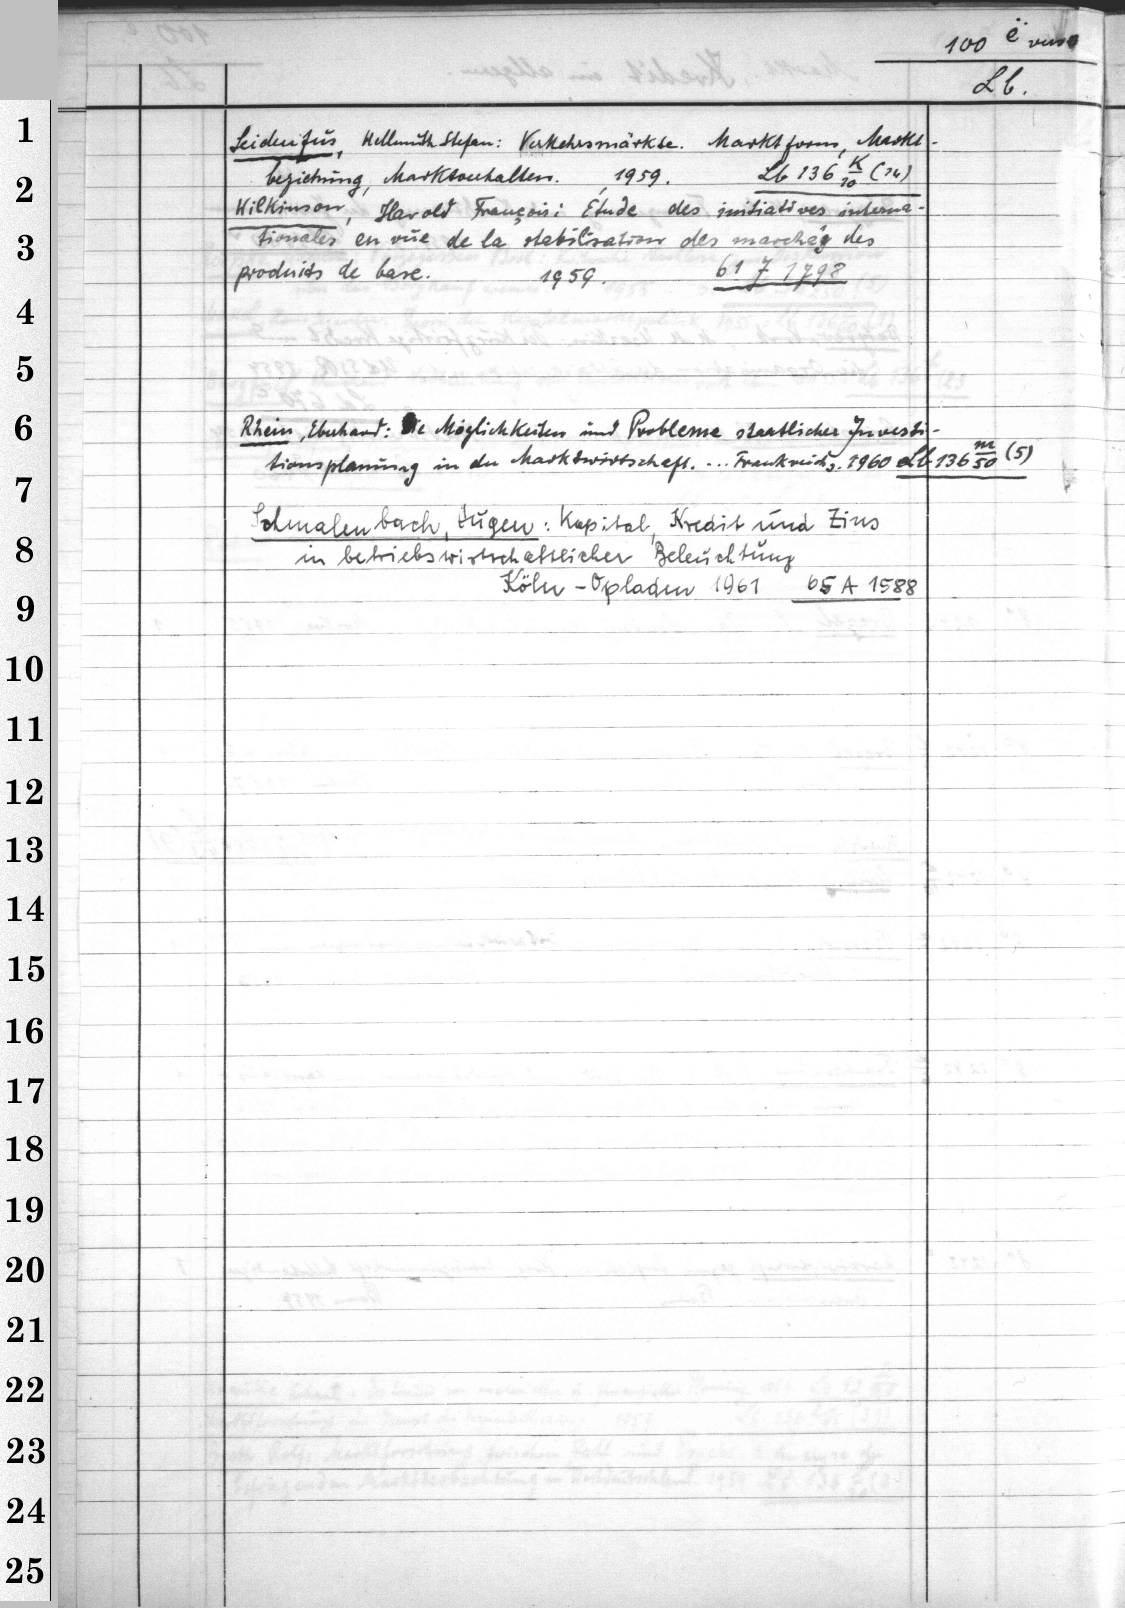 100 ë verso
Lb.
1
Seidenfus, Hellmuth Stefan: Verkehrsmärkte. Marktform, Markt-
2
beziehung, Marktverhalten. 1959. Lb 136 K/10 (14)
Wilkinson, Harold François: Etude des initiatives interna-
3
tionales en vue de la stabilisation des marchés des
produits de base. 1959. 61 7 1798
4
5
6
Rhein, Eberhard: Die Möglichkeiten und Probleme staatlicher Investi-
tionsplanung in der Marktwirtschaft. ... Frankreich. 1960 Lb 136 m/50 (5)
7
Schmalenbach, Eugen: Kapital, Kredit und Zins
8
in betriebswirtschaftlicher Beleuchtung
Köln - Opladen 1961 65 A 1588
9
10
11
12
13
14
15
16
17
18
19
20
21
22
23
24
25